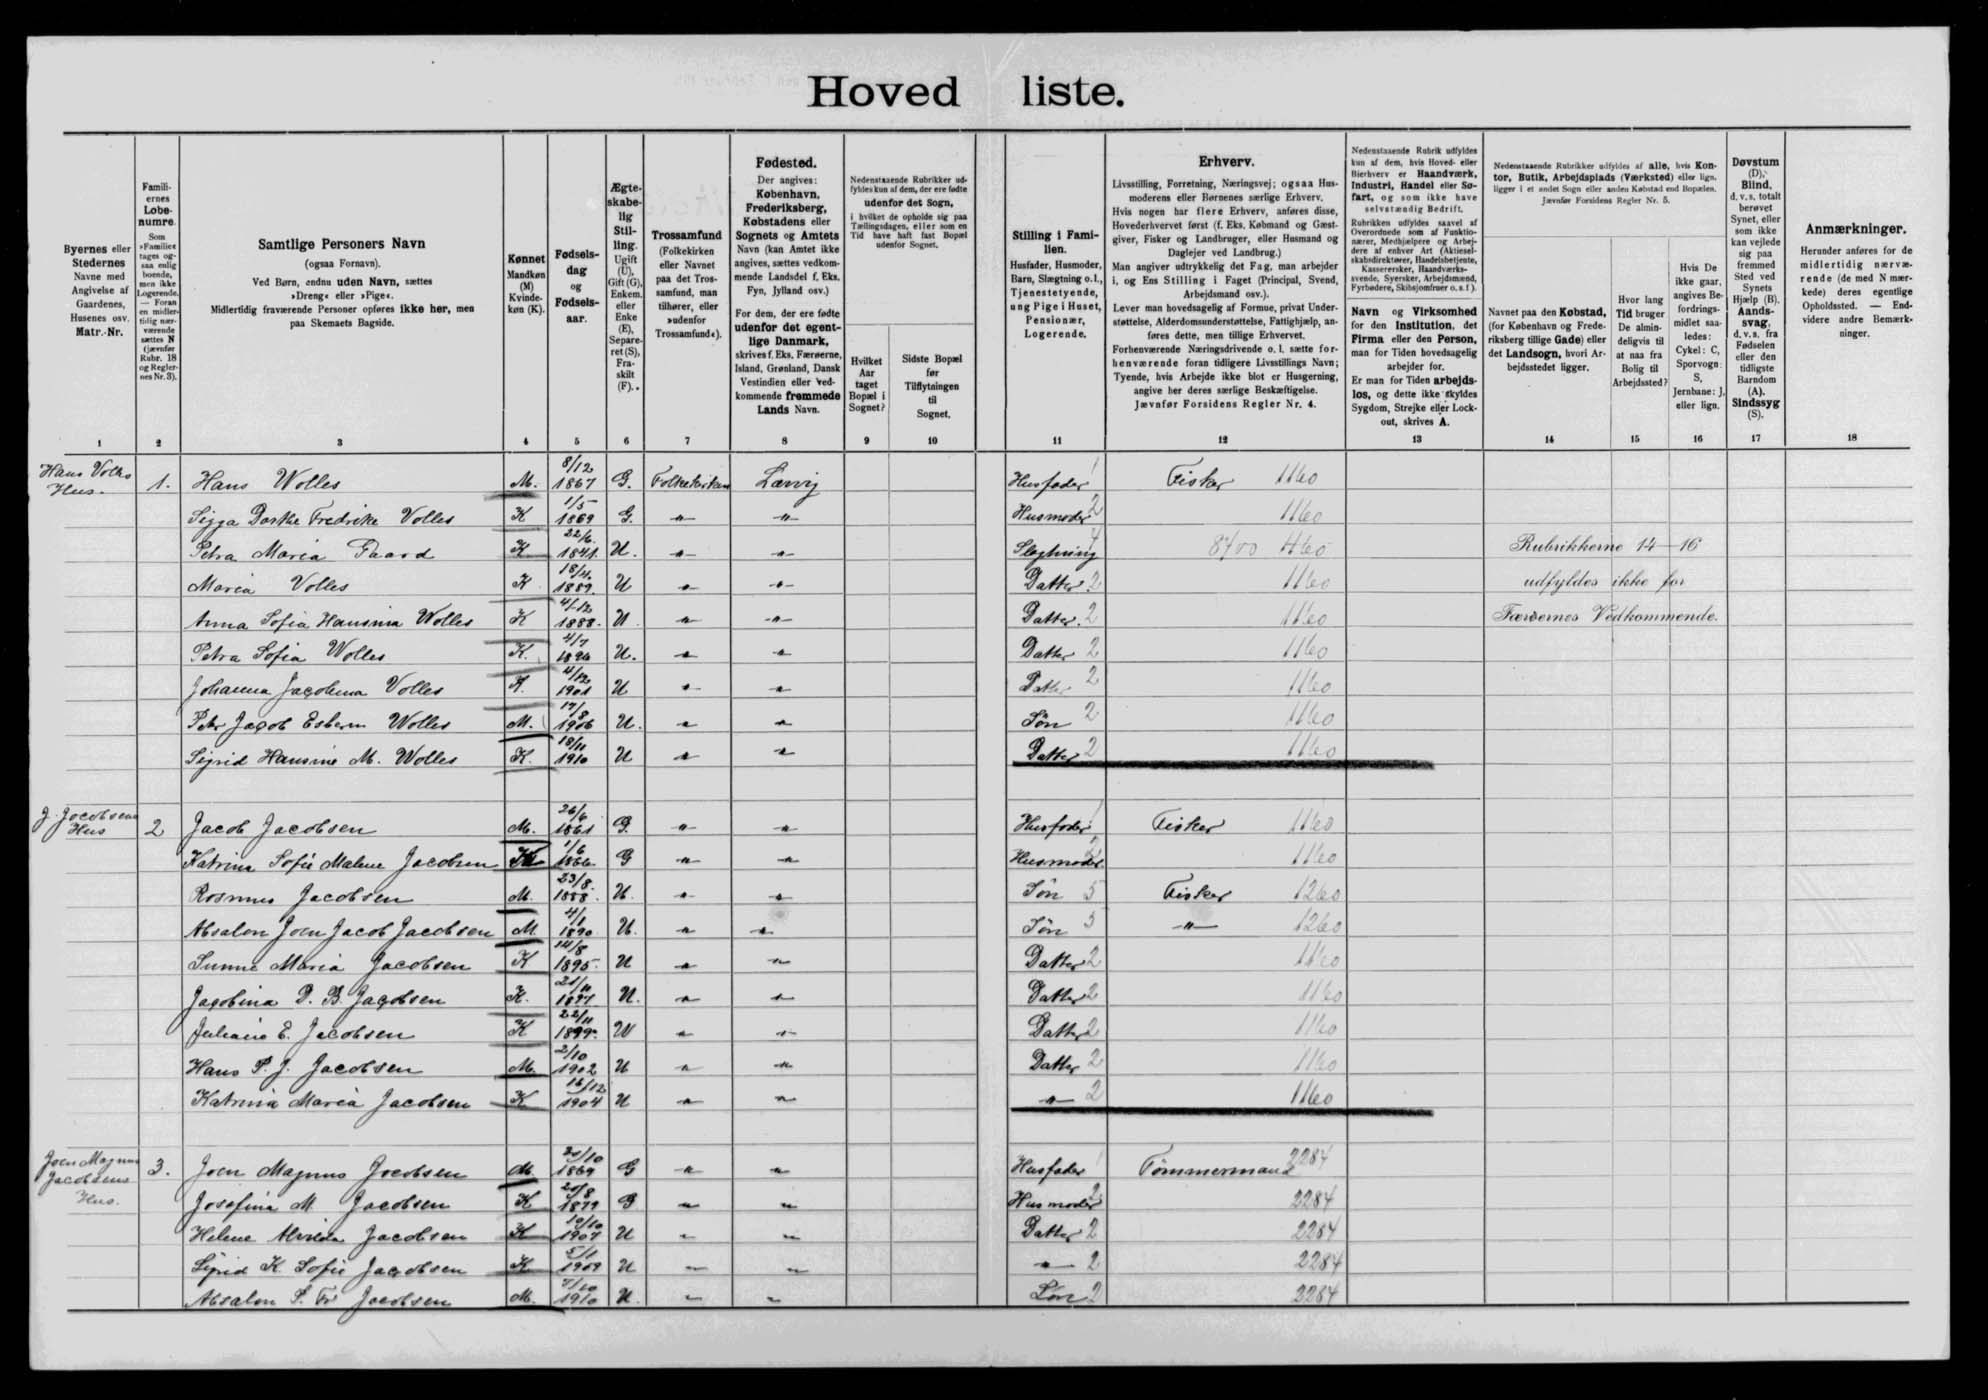 Hovedliste.
Byernes eller
Stedernes
Navne med
Angivelse af
Gaardenes,
Husenes osv.
Matr.-Nr.
1
Famili-
ernes
Løbe-
numre.
Som
»Familie«
tages og-
saa enlig
boende,
men ikke
Logerende.
— Foran
en midler-
tidig nær-
værende
sættes N
(jævnfør
Rubr. 18
og Regler-
nes Nr. 3).
2
Samtlige Personers Navn
(ogsaa Fornavn).
Ved Børn, endnu uden Navn, sættes
»Dreng« eller »Pige«.
Midlertidig fraværende Personer opføres ikke her, men
paa Skemaets Bagside.
3
Kønnet
Mandkøn
(M)
Kvinde-
køn (K).
4
Fødsels-
dag
og
Fødsels-
aar.
5
Ægte-
skabe-
lig
Stil-
ling.
Ugift
(U),
Gift (G),
Enkem.
eller
Enke
(E),
Separe-
ret (S),
Fra-
skilt
(F).
6
Trossamfund
(Folkekirken
eller Navnet
paa det Tros-
samfund, man
tilhører, eller
»udenfor
Trossamfund«).
7
Fødested.
Der angives:
København,
Frederiksberg,
Købstadens eller
Sognets og Amtets
Navn (kan Amtet ikke
angives, sættes vedkom-
mende Landsdel f. Eks.
Fyn, Jylland osv.)
For dem, der ere fødte
udenfor det egent-
lige Danmark,
skrives f. Eks. Færøerne,
Island, Grønland, Dansk
Vestindien eller Ved-
kommende fremmede
Lands Navn.
8
Nedenstaaende Rubrikker ud-
fyldes kun af dem, der ere fødte
udenfor det Sogn,
i hvilket de opholde sig paa
Tællingsdagen, eller som en
Tid have haft fast Bopæl
udenfor Sognet.
Hvilket
Aar
taget
Bopæl i
Sognet?
9
Sidste Bopæl
før
Tilflytningen
til
Sognet.
10
Stilling i Fami-
lien.
Husfader, Husmoder,
Barn, Slægtning o.l.,
Tjenestetyende,
ung Pige i Huset,
Pensionær,
Logerende.
11
Erhverv.
Livsstilling, Forretning, Næringsvej; ogsaa Hus-
moderens eller Børnenes særlige Erhverv.
Hvis nogen har flere Erhverv, anføres disse,
Hovederhvervet først (f. Eks. Købmand og Gæst-
giver, Fisker og Landbruger, eller Husmand og
Daglejer ved Landbrug.)
Man angiver udtrykkelig det Fag, man arbejder
i, og Ens Stilling i Faget (Principal, Svend,
Arbejdsmand osv.).
Lever man hovedsagelig af Formue, privat Under-
støttelse, Alderdomsunderstøttelse, Fattighjælp, an-
føres dette, men tillige Erhvervet.
Forhenværende Næringsdrivende o. l. sætte for-
henværende foran tidligere Livsstillings Navn;
Tyende, hvis Arbejde ikke blot er Husgerning,
angive her deres særlige Beskæftigelse.
Jævnfør Forsidens Regler Nr. 4.
12
Nedenstaaende Rubrik udfyldes
kun af dem, hvis Hoved- eller
Bierhverv er Haandværk,
Industri, Handel eller Sø-
fart, og som ikke have
selvstændig Bedrift.
Rubrikken udfyldes saavel af
Overordnede som af Funktio-
nærer, Medhjælpere og Arbej-
dere af enhver Art (Aktiesel-
skabsdirektører, Handelsbetjente,
Kasserersker, Haandværks-
svende, Syersker, Arbejdsmænd,
Fyrbødere, Skibsjomfruer o. s. f.).
Navn og Virksomhed
for den Institution, det
Firma eller den Person,
man for Tiden hovedsagelig
arbejder for.
Er man for Tiden arbejds-
løs, og dette ikke skyldes
Sygdom, Strejke eller Lock-
out, skrives A.
13
Nedenstaaende Rubrikker udfyldes af alle, hvis Kon-
tor, Butik, Arbejdsplads (Værksted) eller lign.
ligger i et andet Sogn eller anden Købstad end Bopælen.
Jævnfør Forsidens Regler Nr. 5.
Navnet paa den Købstad,
(for København og Frede-
riksberg tillige Gade) eller
det Landsogn, hvori Ar-
bejdsstedet ligger.
14
Hvor lang
Tid bruger
De almin-
deligvis til
at naa fra
Bolig til
Arbejdssted?
15
Hvis De
ikke gaar,
angives Be-
fordrings-
midlet saa-
ledes:
Cykel: C,
Sporvogn:
S,
Jernbane: J,
eller lign.
16
Døvstum
(D),
Blind,
d. v. s. totalt
berøvet
Synet, eller
som ikke
kan vejlede
sig paa
fremmed
Sted ved
Synets
Hjælp (B).
Aands-
svag,
d. v. s. fra
Fødselen
eller den
tidligste
Barndom
(A).
Sindssyg
(S).
17
Anmærkninger.
Herunder anføres for de
midlertidig nærvæ-
rende (de med N mær-
kede) deres egentlige
Opholdssted. — End-
videre andre Bemærk-
ninger.
18
Hans Volles Hus. 1. Hans Wolles M. 8/12 1867 G. Folkekirken Lervig Husfader 1 Fisker 1160
Sigga Dorthe Fredrike Volles K 1/5 1869 G. " " Husmoder 2 1160
Petra Maria Paard K 22/6 1841. U. " " Slegtning 4 8700 4160
Maria Volles K 18/4 1889. U " " Datter 2 1160
Anna Sofia Hansina Wolles K 4/12 1888. U " " Datter. 2 1160
Petra Sofia Wolles K. 4/7 1896 U. " " Datter 2 1160
Johanna Jacobina Volles K. 4/12 1901 U " " Datter 2 1160
Petr Jacob Esbern Wolles M. 17/8 1906 U. " " Søn 2 1160
Sigrid Hansine M. Wolles K. 18/11 1910 U " " Datter 2 1160
Rubrikkerne 14—16
udfyldes ikke for
Færøernes Vedkommende.
J. Jacobsens Hus 2 Jacob Jacobsen M. 26/6 1861 G. " " Husfader 1 Fisker 1160
Katrina Sofie Malene Jacobsen K 1/6 1866. G " " Husmoder. 2 1160
Rasmus Jacobsen M. 23/8. 1888. U. " " Søn 5 Fisker 1260
Absalon Joen Jacob Jacobsen M. 4/1 1890 U. " " Søn 5 " 1260
Sunne Maria Jacobsen K 14/8 1895. U " " Datter 2 1160
Jacobina D. B. Jacobsen K. 21/11 1897 U. " " Datter 2 1160
Juliane E. Jacobsen K 22/11 1899. U " " Datter 2 1160
Hans P. J. Jacobsen M. 2/10 1902 U " " Datter 2 1160
Katrina Maria Jacobsen K 16/12 1904 U " " " 2 1160
Joen Magnus Jacobsens Hus. 3. Joen Magnus Jacobsen M 20/10 1869 G " " Husfader 1 Tømmermand 2284
Josefina M Jacobsen K 20/8 1879 G " " Husmoder 2 2284
Helene Alvilda Jacobsen K 19/10 1907 U " " Datter 2 2284
Sigrid K. Sofie Jacobsen K 5/1 1909 U " " " 2 2284
Absalon S. Fr. Jacobsen M. 7/10 1910 U. " " Søn 2 2284